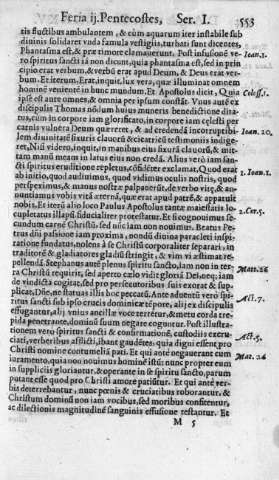 Feria ij. Pentecostes, Ser. I. 553
tis fluctibus ambulantem, & cùm aquarum iter instabile sub
diuinis solidaret vada famula vestigiis, turbati sunt dicentes,
Phantasma est, & præ timore clamauerunt. Post infusionē ve- Ioan.1.
rò spiritus sancti iā non dicunt, quia phantasma est, sed in prin
cipio erat verbum, & verbū erat apud Deum, & Deus erat ver-
bum. Et iterum, Erat, inquit, lux vera, quæ illuminat omnem
hominē venientē in hunc mundum. Et Apostolus dicit, Quia Coloss.1.
ipse est ante omnes, & omnia per ipsum constāt. Vnus autē ex
discipulis Thomas nōdum huius muneris benedictione dita-
tus, cum in corpore iam glorificato, in corpore iam cælesti per
carnis vulnera Deum quæreret, & ad credendā incorruptibi- Ioan. 20.
lem diuinitatē fixuris clauorū & cicatricū testimoniis indige-
ret, Nisi videro, inquit, in manibus eius fixurā clauorū, & mit-
tam manū meam in latus eius non credā. Alius verò iam san-
cti spiritus eruditione repletus, consōsidēter exclamat, Quod erat 1.Ioan.1.
ab initio, quod audiuimus, quod vidimus oculis nostris, quod
perspeximus, & manus nostræ palpauerūt, de verbo vitæ, & an-
nuntiamus vobis vitā æternā, quæ erat apud patrē, & apparuit
nobis. Et iterū alio loco Paulus Apostolus tantæ maiestatis lo- 2.Cor.5.
cupletatus illapsū fiducialiter protestatur. Et si cognouimus se-
cundum carnē Christū, sed nūc iam non nouimus. Beatus Pe-
trus dñi passione adhuc proxima, nondū diuina paracleti inspi-
ratione fundatus, nolens à se Christū corporaliter separari, in
traditorē & gladiatores gladiū stringit, & vim vi æstimat re-
pellendā. Stephanus autē plenus spiritu sancto, iam non in ter- Matt.26
ra Christū requirit, sed aperto cælo vidit gloriā Dei, nec iam
de vindicta cogitat, sed pro persecutoribus suis exorat & sup-
plicat, Dñe, ne statuas illis hoc peccatū. Ante aduentū verò spi- Act.7.
ritus sancti sub ipso crucis dominicæ tēpore, alij ex discipulis
effugantur, alij vnius ancillæ voce terrētur, & metu corda tre-
pida penetrante, dominū suum negare coguntur. Post illustra-
tionem verò spiritus sancti & confirmationē, custodiis exeru-
ciati, verberibus afflicti, ibant gaudētes, quia digni essent pro Act.5.
Christi nomine contumeliā pati. Et qui ante negauerant cum
iuramento, quia non nouimus hominē istū: nunc propter eum Mat.26
in suppliciis gloriantur, & operante in se spiritu sancto, parum
putant esse quod pro Christi amore patiūtur. Et qui antè ver-
bis deterrebantur, nunc pœnis & cruciatibus roborantur, &
Christum dominū non iam vocibus, sed moribus confitentur,
ac dilectionis magnitudinē sanguinis effusione testantur. Et
M 5